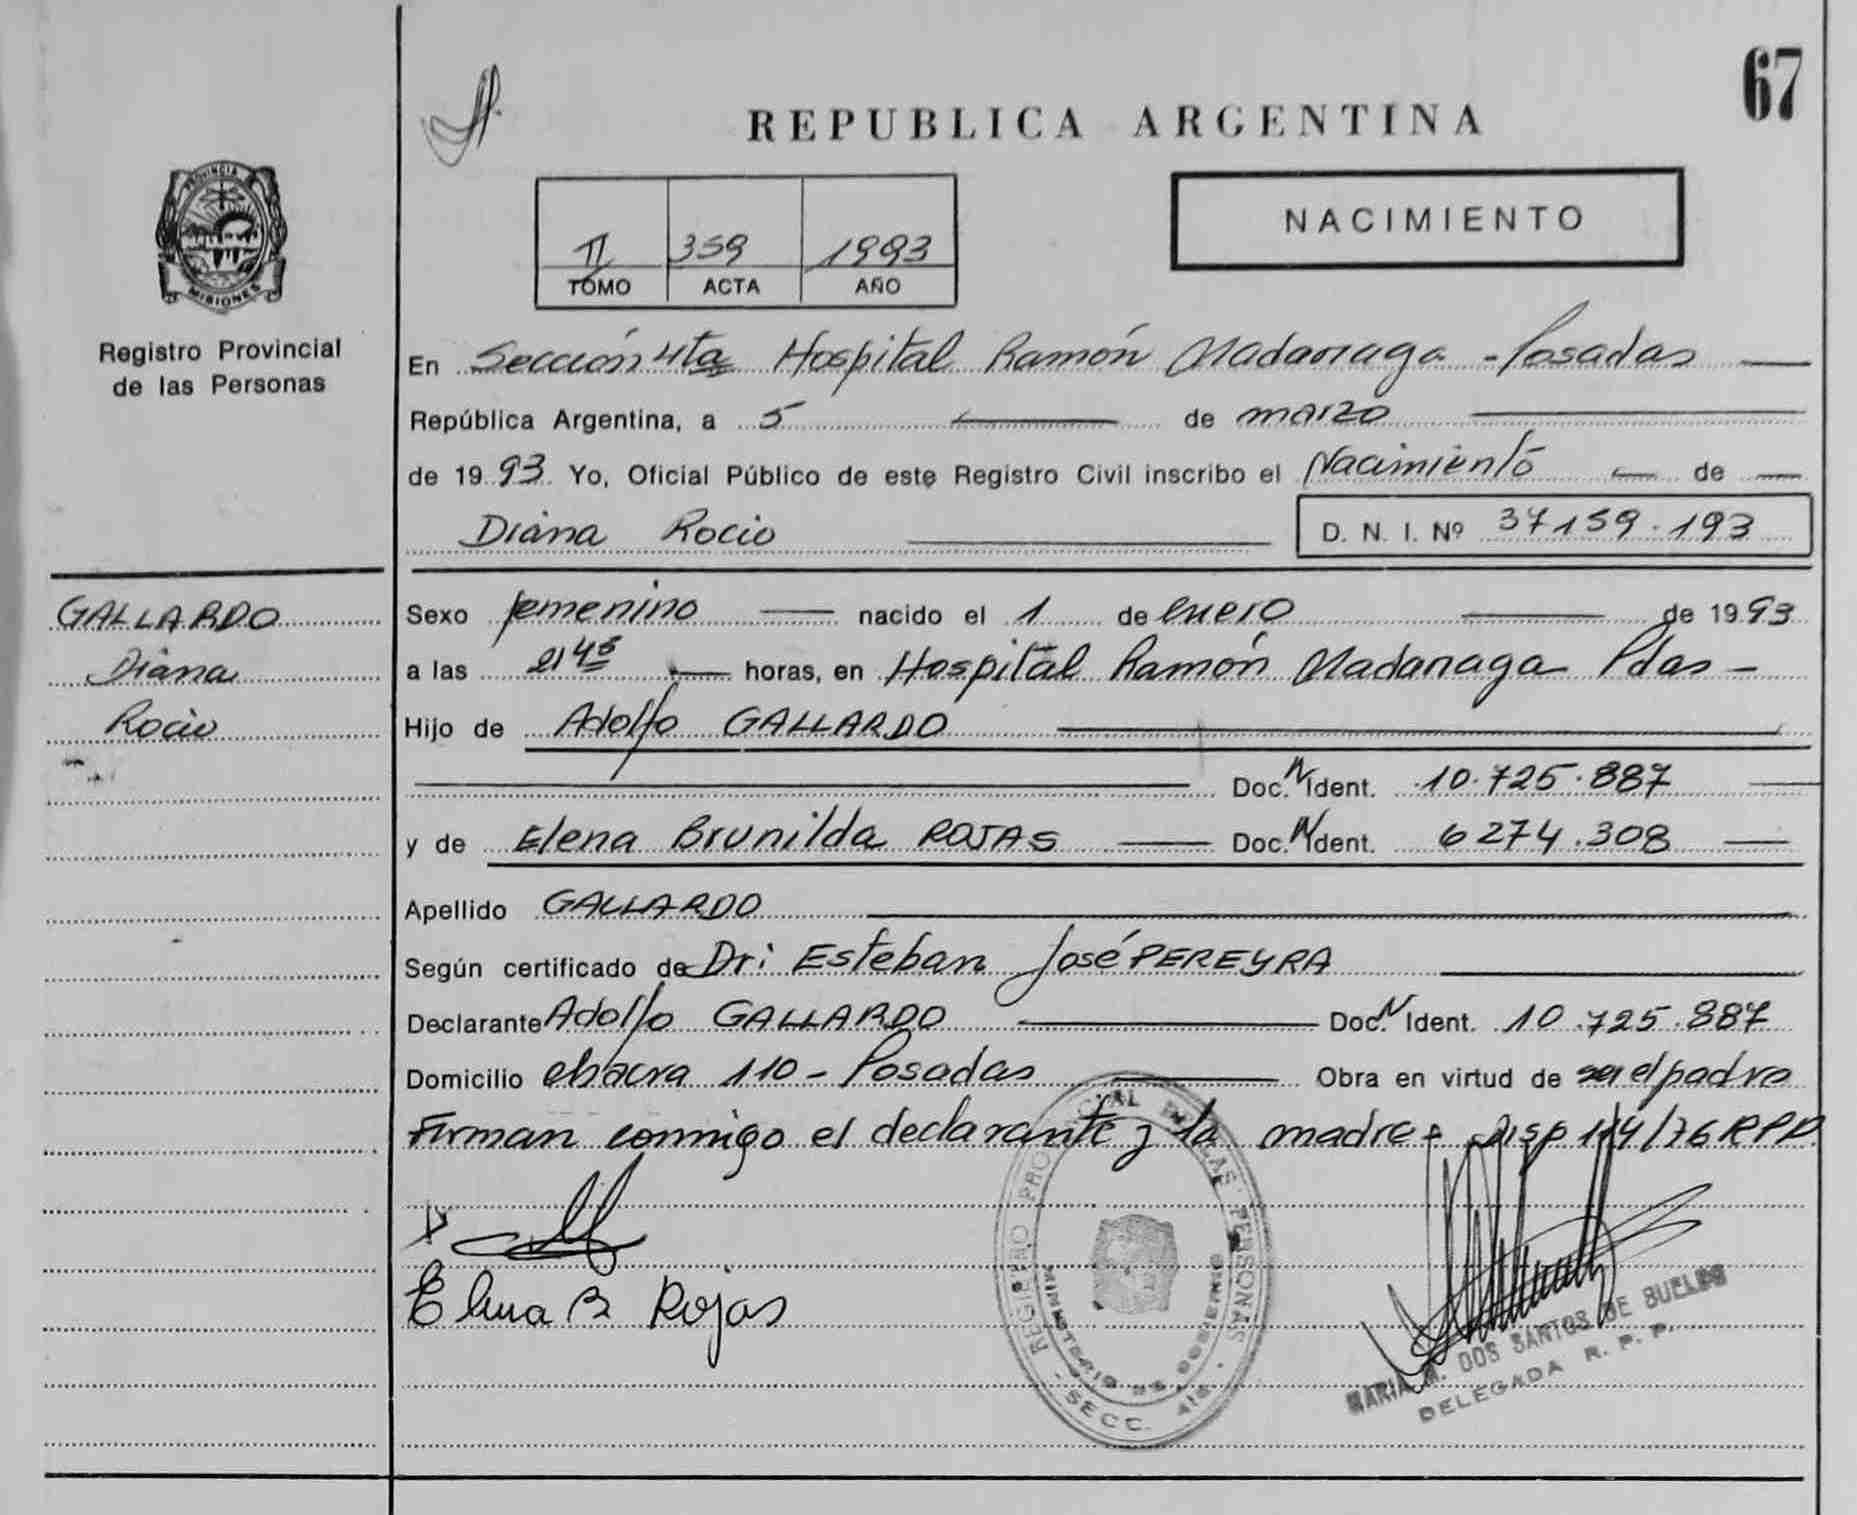 67
REPUBLICA ARGENTINA
NACIMIENTO
II 359 1993
TOMO ACTA AÑO
PROVINCIA DE
MISIONES
Registro Provincial
de las Personas
En Sección 4ta Hospital Ramón Madariaga - Posadas
República Argentina, a 5 de marzo
de 19 93 Yo, Oficial Público de este Registro Civil inscribo el Nacimiento de
Diana Rocio D. N. I. Nº 37159.193
GALLARDO
Diana
Rocio
Sexo femenino nacido el 1 de enero de 19 93
a las 21 45 horas, en Hospital Ramón Madariaga Pdas -
Hijo de Adolfo GALLARDO
Doc. N Ident. 10.725.887
y de Elena Brunilda ROJAS Doc. N Ident. 6274.308
Apellido GALLARDO
Según certificado de Dr: Esteban José PEREYRA
Declarante Adolfo GALLARDO Doc. N Ident. 10.725.887
Domicilio chacra 110 - Posadas Obra en virtud de ser el padre
Firman conmigo el declarante y la madre - Disp 114/76 RPP.
Elena B Rojas
REGISTRO PROVINCIAL DE LAS PERSONAS
MINISTERIO DE GOBIERNO
SECC. 4ta
MARIA DOS SANTOS DE BUELOS
DELEGADA R. P. P.